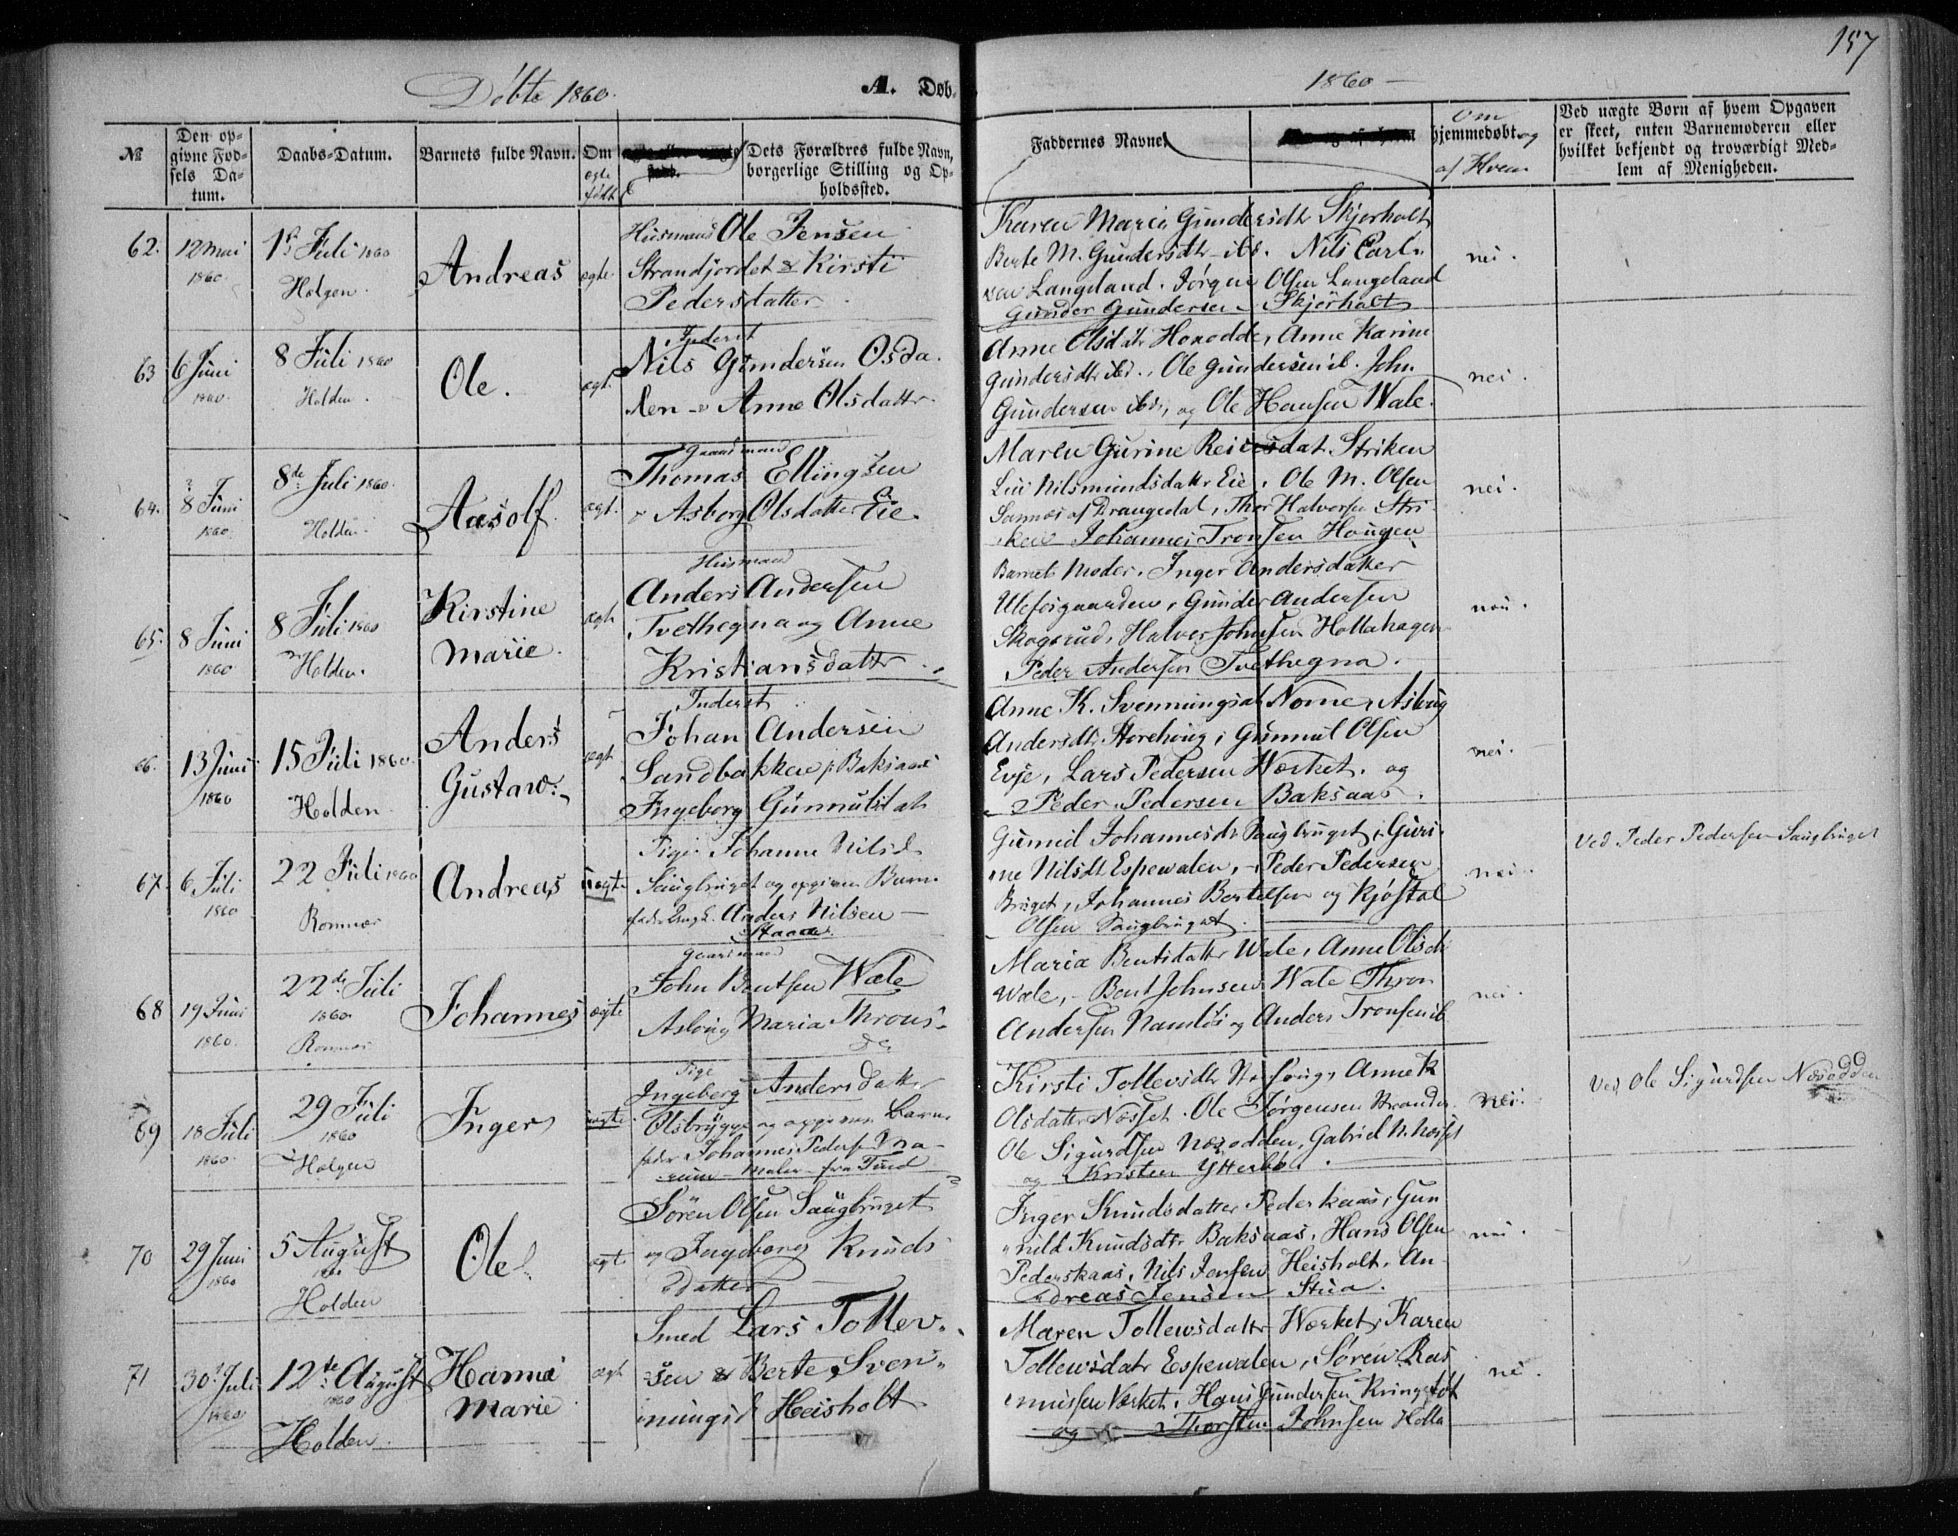 157
Døbte 1860.
A. Døb-
1860 -
№
Den op-
givne Fød-
sels Da-
tum.
Daabs-Datum.
Barnets fulde Navn.
Om
ægte
født
Dets Forældres fulde Navn,
borgerlige Stilling og Op-
holdssted.
Faddernes Navne
Om
hjemmedøbt og
af Hvem
Ved uægte Børn af hvem Opgaven
er skeet, enten Barnemoderen eller
hvilket bekjendt og troværdigt Med-
lem af Menigheden.
62.
12 Mai
1860
1st Juli 1860
Helgen.
Andreas
ægte
Husmand Ole Jensen
Strandjordet & Kirsti
Pedersdatter
Karen Maria Gundersdtr Skjørholt
Berte M. Gundersdtr ibd. Nils Carl
sen Langeland. Jørgen Olsen Langeland
Gunder Gundersen Skjørholt
nei.
63
6 Juni
1860
8 Juli 1860
Holden.
Ole.
ægt.
Inderst
Nils Gundersen Osda
len & Anne Olsdattr.
Anne Olsdatr Honodde, Anne Karine
Gundersdtr ibd., Ole Gundersen ib. John
Gundersen ibd., og Ole Hansen Wale.
nei.
64.
8 Juni
1860
8de Juli 1860.
Holden
Aasolf
ægt.
Gaardmand
Thomas Ellingsen
& Asborg Olsdatte Eie
Maren Gurine Dat. Striken
Nilsmundsdatr Eie, Ole M. Olsen
Sannes af Drangedal, Thor Halvorsen Stri
ken Johannes Tronsen Haugen
nei.
65.
8 Juni
1860
8 Juli 1860
Holden.
Kirstine
Marie.
ægt.
Husmand
Anders Andersen
Tvethegna og Anne
Kristiansdattr
Barnets Moder. Inger Andersdatter
Ulefosgaarden, Gunder Andersen
Skogsrud, Halvor Johnsen Hollahagen
Peder Andersen Tvethegna.
nei.
66.
13 Juni
1860
15 Juli 1860.
Holden
Anders
Gustav.
ægt
Inderst
Johan Andersen
Sandbakken p. Baksaas
Ingeborg Gunnulsdat
Anne K. Svenningsdt Nome, Aslaug
Andersdtr Storehoug, Gunnul Olsen
Evje, Lars Pedersen Værket. og
Peder Pedersen Baksaas.
nei.
67.
6. Juli
1860
22 Juli 1860
Romnæs
Andreas
uægte
Pige Johanne Nilsd.
Saugbruget og opgiven Barne
fader Ungk. Anders Nilsen
Staaa
Gunild Johannesdr Saugbruget, Guri
ne Nilsdt Espevalen, - Peder Pedersen
Bruget, Johannes Bertelsen og Kjøstol
Olsen Saugbruget
nei.
Ved Peder Pedersen Saugbruget
68
19 Juni
1860.
22de Juli
1860
Romnæs
Johannes
ægte
Gaardmand
John Bentsen Wale
Aslaug Maria Throns
dr
Maria Bentsdatter Wale, Anne Olsdtr
Wale, - Bent Johnsen Wale Thron
Andersen Namløs og Anders Tronsen ib
nei.
69
18 Juli
1860.
29 Juli
1860
Helgen
Inger
uægte
Pige
Ingeborg Andersdatter
Olsbrygge og opgiven Barne
fader Johannes Pedersen
Maler fra Tind
Kirsti Tollevsdtr Anne K
Olsdatter Næsset. Ole Jørgensen Strande
Ole Sigurdsen Næsodden, Gabriel N. Næsset
og Kristen Ytterbø
nei.
Ved Ole Sigurdsen Næsodden
70
29 Juni
1860
5 August
1860
Holden
Ole
ægt.
Søren Olsen Saugbruget
og Ingeborg Knuds
datter
Inger Knudsdatter Pederskaas, Gun
nild Knudsdtr Baksaas, Hans Olsen
Pederskaas, Nils Jensen Heisholt, An
dreas Jensen Stua.
nei.
71
30 Juli
1860
12te August
1860
Holden
Hanna
Marie
ægt
Smed Lars Tollev
sen & Berte Sven
ningsd Heisholt
Maren Tollevsdattr Værket, Karen
Tollevsdatr Espevalen, Søren Ras
mussen Værket, Hans Gundersen Kringstdt
og Thorsten Johnsen Holla
nei.